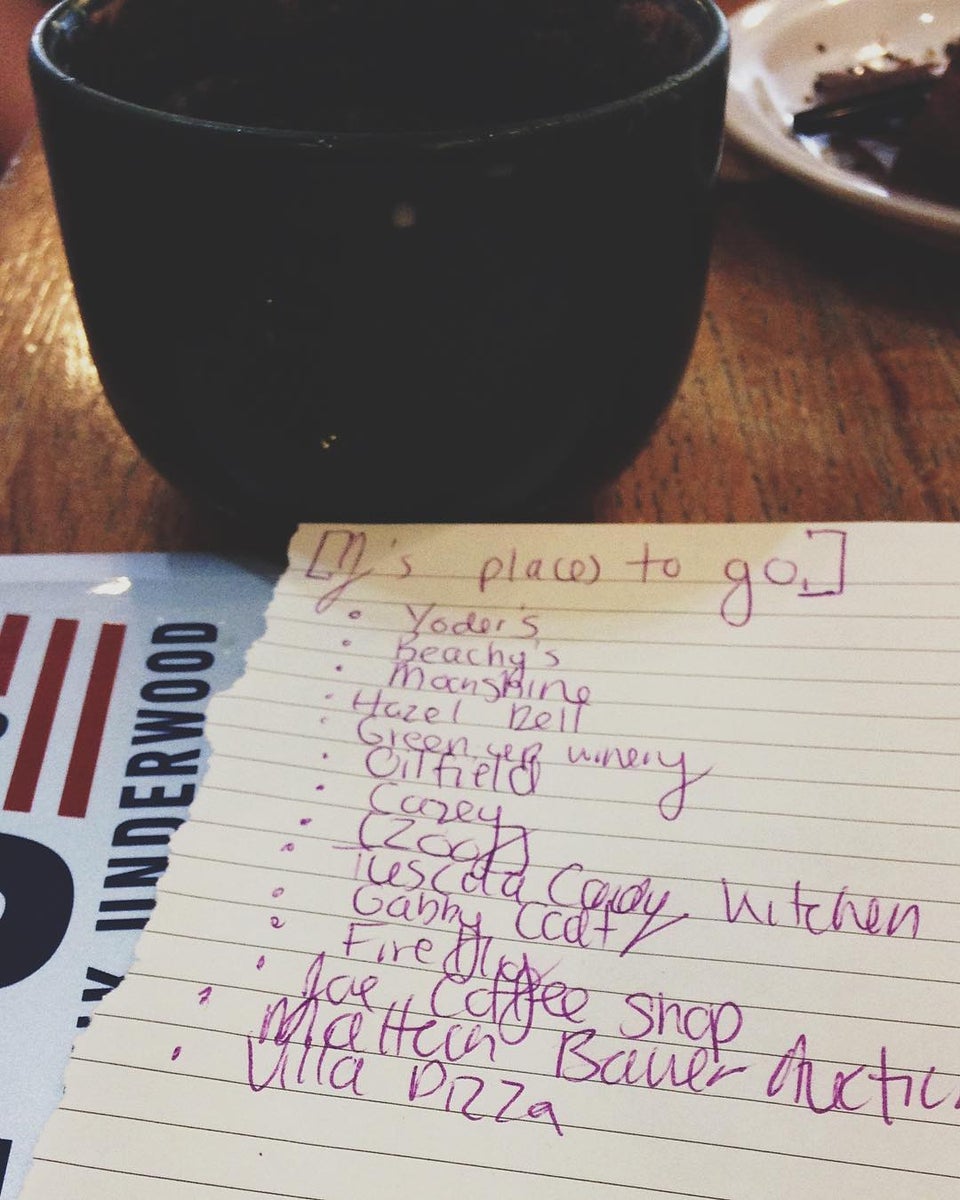 's places to go.]
• Yoder's
• Beachy's
• Moonshine
• Hazel Dell
• Greenup winery
• Oilfield
• Casey
•
• Tuscola Candy Kitchen
• Gabby Goat
• Firefly
• Joe Coffee shop
• Matteun Bauer Auctio
• Villa Pizza
UNDERWOOD